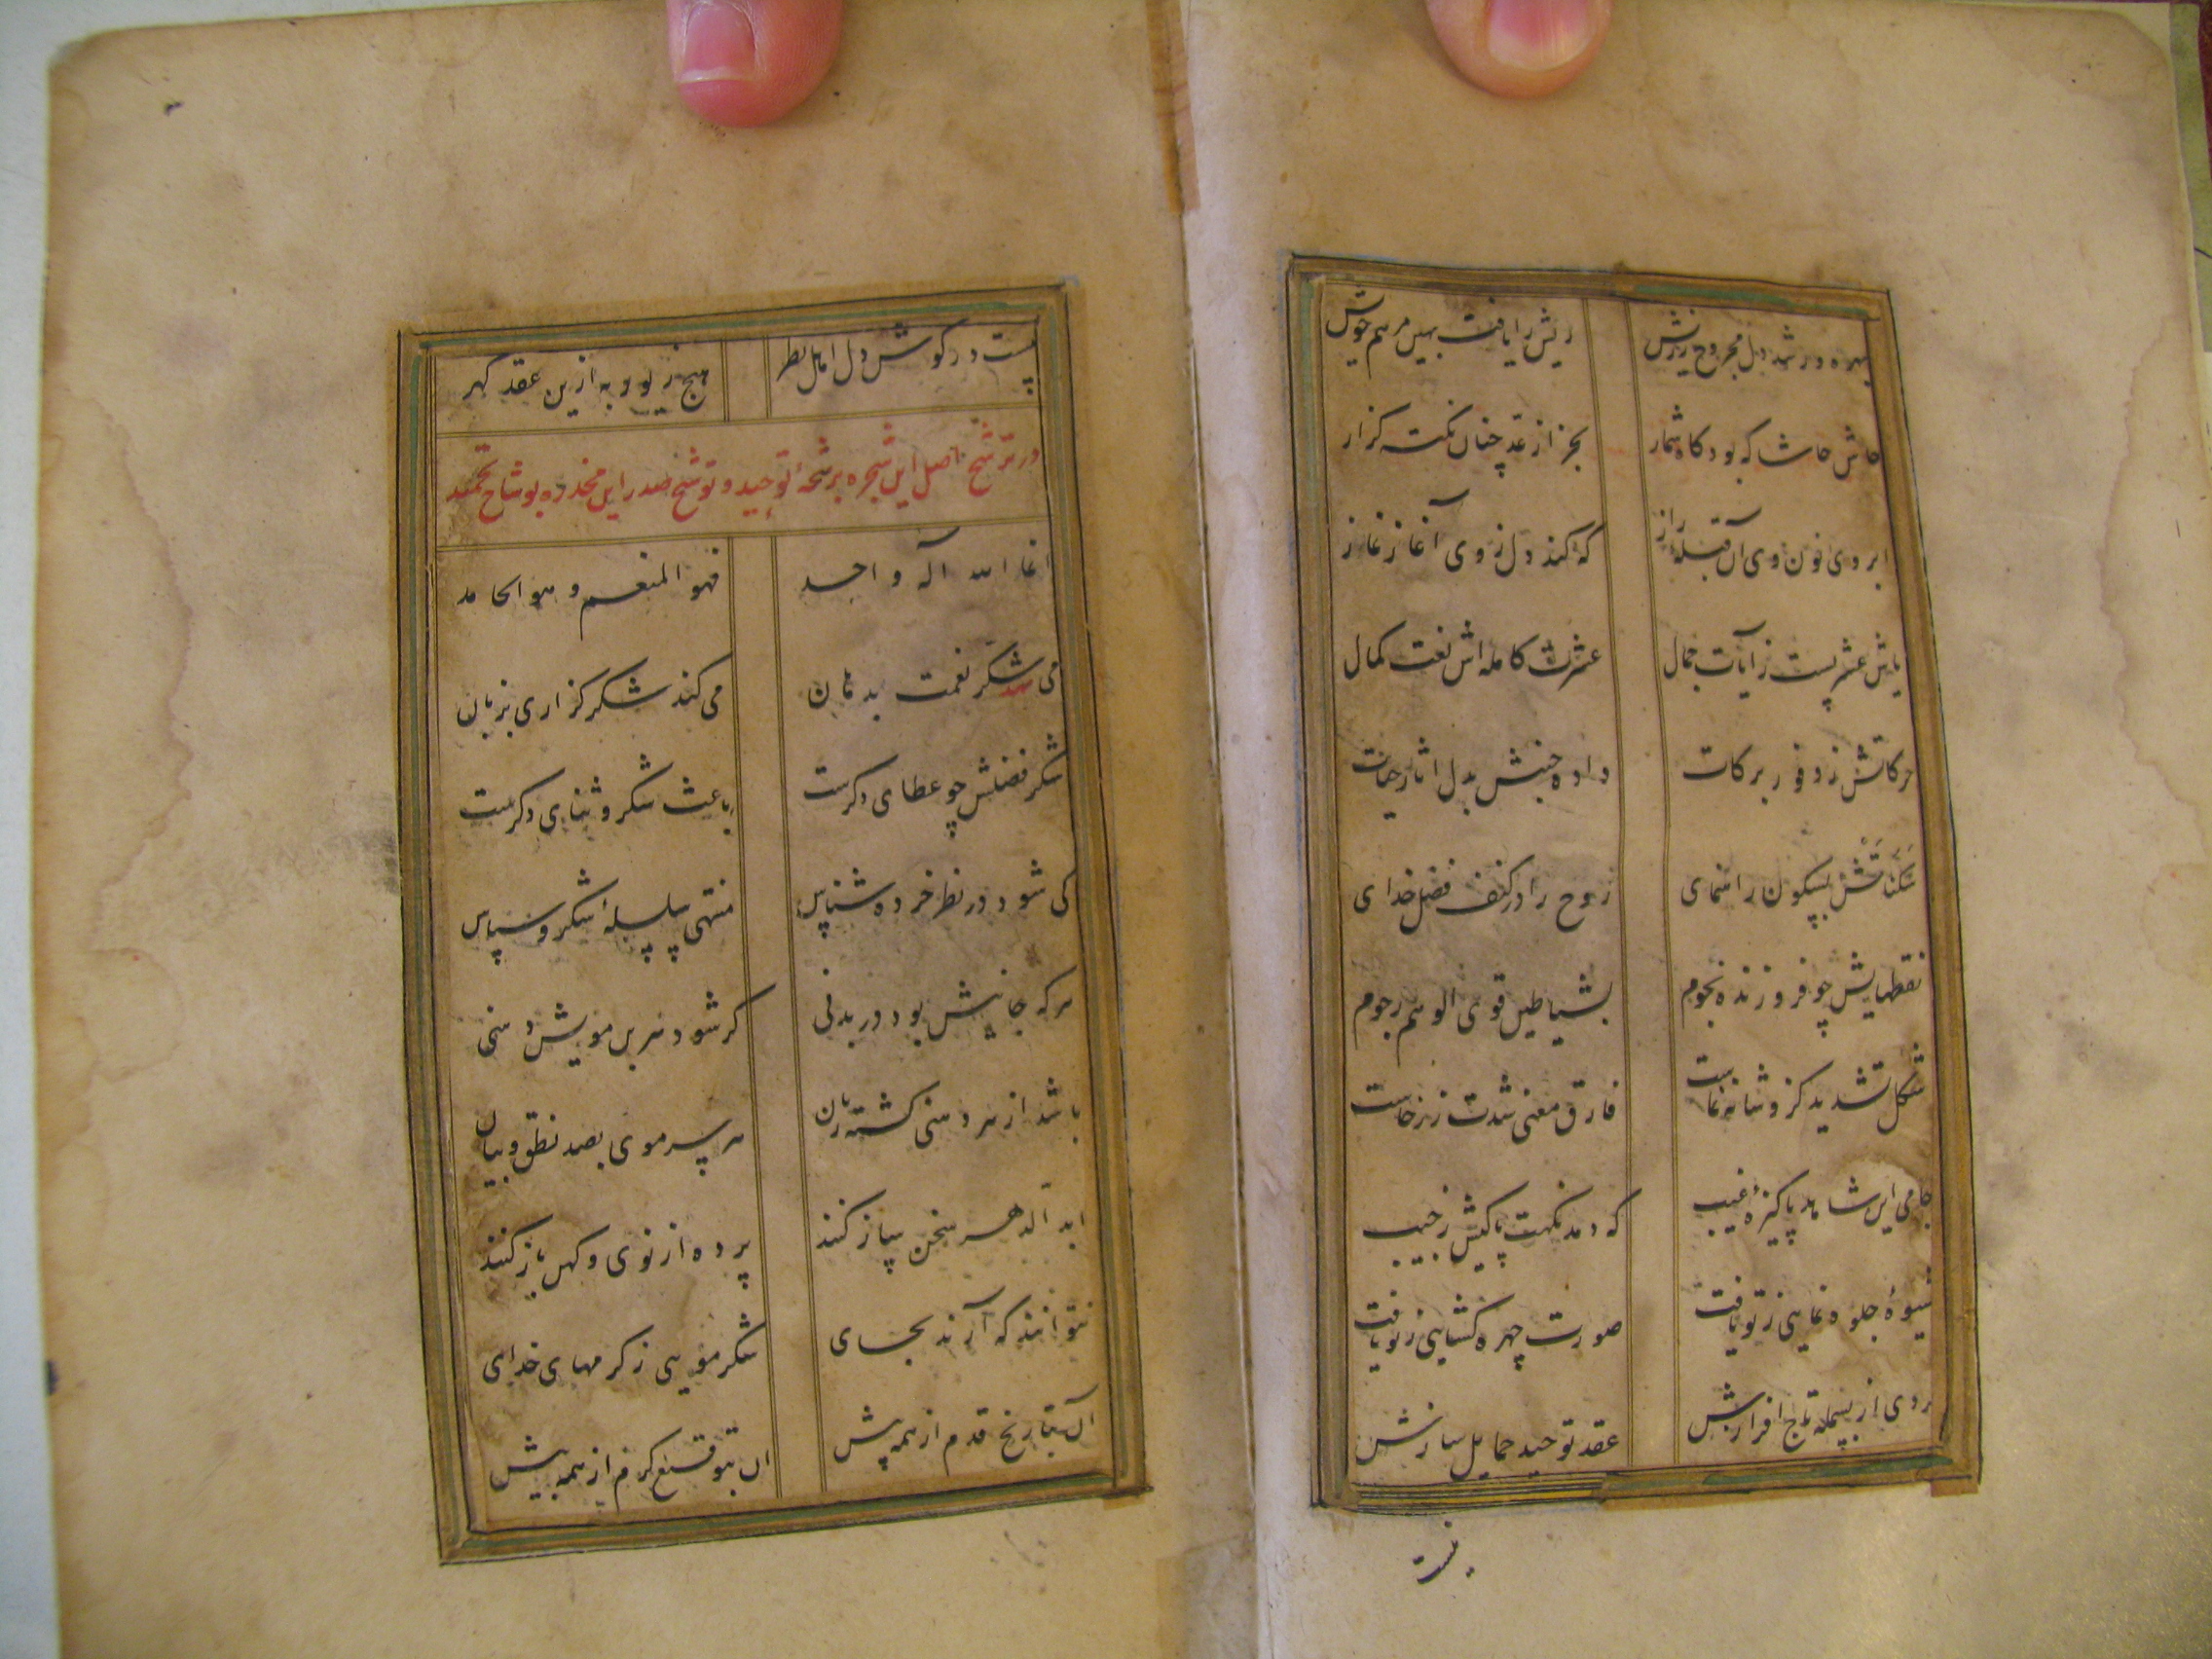 بهره ور شد دل مجروح زریش ریش را یافت بهین مرهم خویش
حاش حاشا که بود کاه شمار بجز از عد چنان نکته گزار
ابروی نون وی آن قبله راز که کند دل ز وی آغاز نماز
یاش عشریست ز آیات جمال عشرت کامله اش نعت کمال
حرکاتش ز وفور برکات داده جنبش بدل اثار حیات
سکناتش بسکون راهنمای روح را در کنف فضل خدای
نقطهایش چو فروزنده نجوم بشیاطین قوی الوهم رجوم
شکل تشدید کزو شانه نماست فارق معنی شدت ز رخاست
جامی این شاهد پاکیزهٔ غیب که دمد نکهت پاکیش ز جیب
شیوهٔ جلوه نمایی ز تو یافت صورت چهره کشایی ز تو یافت
بر وی از بسمله تاج افرازش عقد توحید حمایل سازش
نیست
نیست در کوش دل اهل نظر هیچ زیور به ازین عقد کهر
در ترشیح اصل این شجره برشحهٔ توحید و توشیح صدر این مخدره بوشاح تحمید
انما الله اله واحد فهو المنعم و هو الحامد
می نهد شکر نعمت بدهان می کند شکر کزاری بزبان
شکر فضلش چو عطای دکرست باعث شکر و ثنای دکرست
کی شود در نظر خرده شناس منتهی سلسلهٔ شکر و سپاس
هرکه جانیش بود در بدنی کر شود هر بن مویش دهنی
باشد از هر دهنی کشته زبان هر سر موی بصد نطق و بیان
ابد الدهر سخن ساز کنند پرده از نوی و کهن باز کنند
نتوانند که آرند بجای شکر مویی ز کرمهای خدای
آن بتاریخ قدم از همه پیش ان بتوقیع کرم از همه بیش